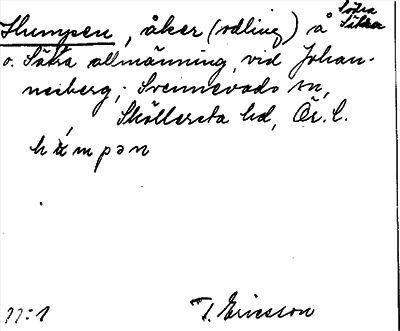 Humpen, åker (odling) å Södra Sikka
o. Säbra allmänning, vid Johan-
nesberg; Svennevads sn,
Sköllersta hd, Ör. l.
húmpən
77:1 T. Ericsson